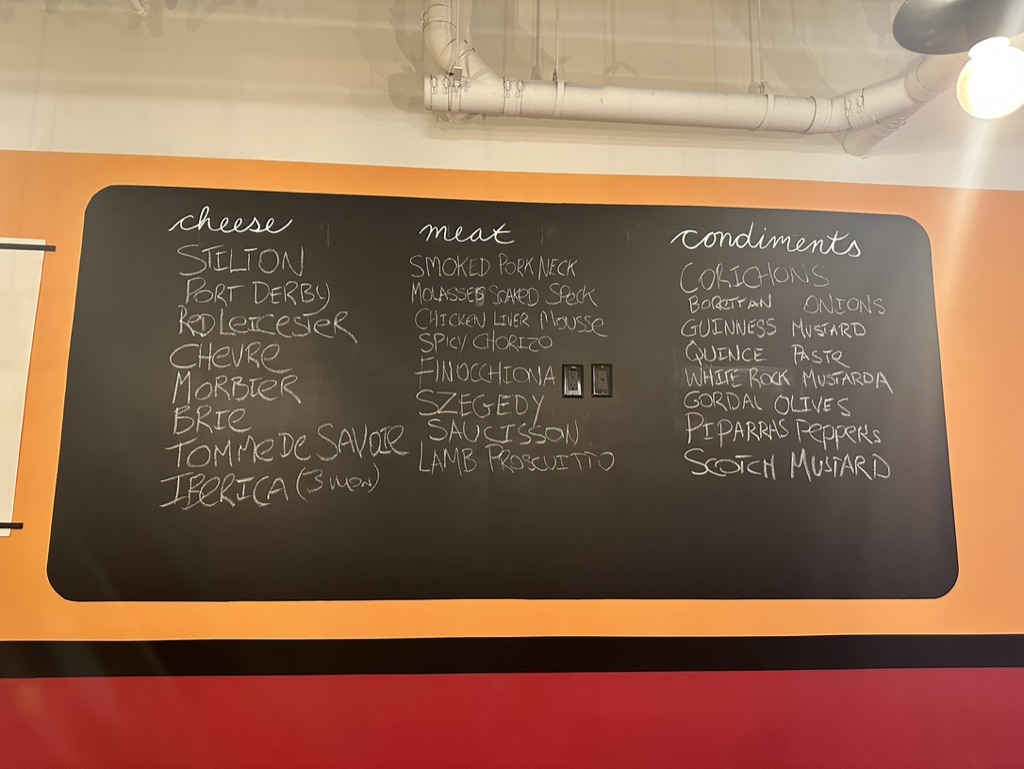 cheese
STILTON
PORT DERBY
RED LEICESTER
CHEVRE
MORBIER
BRIE
TOMME DE SAVOIE
IBERICA (3 MON)
meat
SMOKED PORK NECK
MOLASSES SOAKED SPECK
CHICKEN LIVER MOUSSE
SPICY CHORIZO
FINOCCHIONA
SZEGEDY
SAUCISSON
LAMB PROSCUITTO
condiments
CORICHONS
ONIONS
GUINNESS MUSTARD
QUINCE PASTE
WHITE ROCK MUSTARDA
GORDAL OLIVES
PIPARRAS PEPPERS
SCOTCH MUSTARD